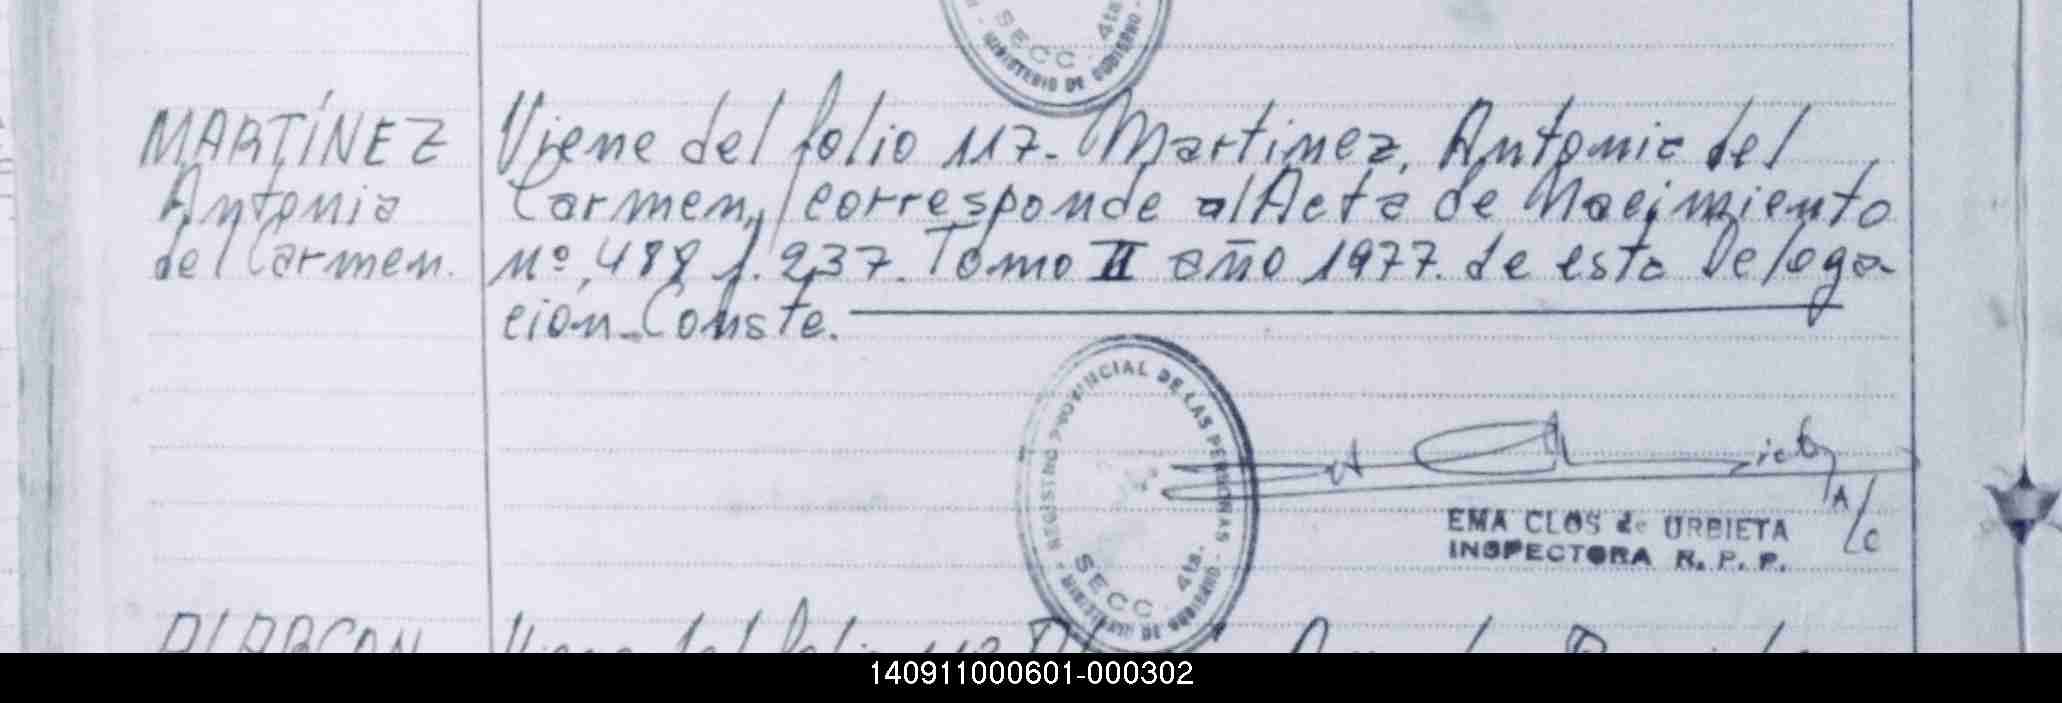 SECC 4ta.
MINISTERIO DE GOBIERNO
MARTÍNEZ
Antonia
del Carmen.
Viene del folio 117. Martinez, Antonia del
Carmen, corresponde al Acta de Nacimiento
nº 488 f. 237. Tomo II año 1977. de esta Delega-
ción. Conste.
REGISTRO PROVINCIAL DE LAS PERSONAS
SECC 4ta.
A/C
EMA CLOS de URBIETA
INSPECTORA R. P. P.
ALARCON
Viene del folio
140911000601-000302